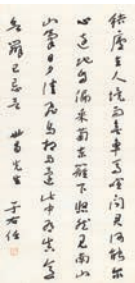 結廬在人境而無車馬喧問君何能爾
心遠地自偏采菊東籬下悠然見南山
山氣日夕佳飛鳥相與還此中有真意欲
辨已忘言
先生
于右任